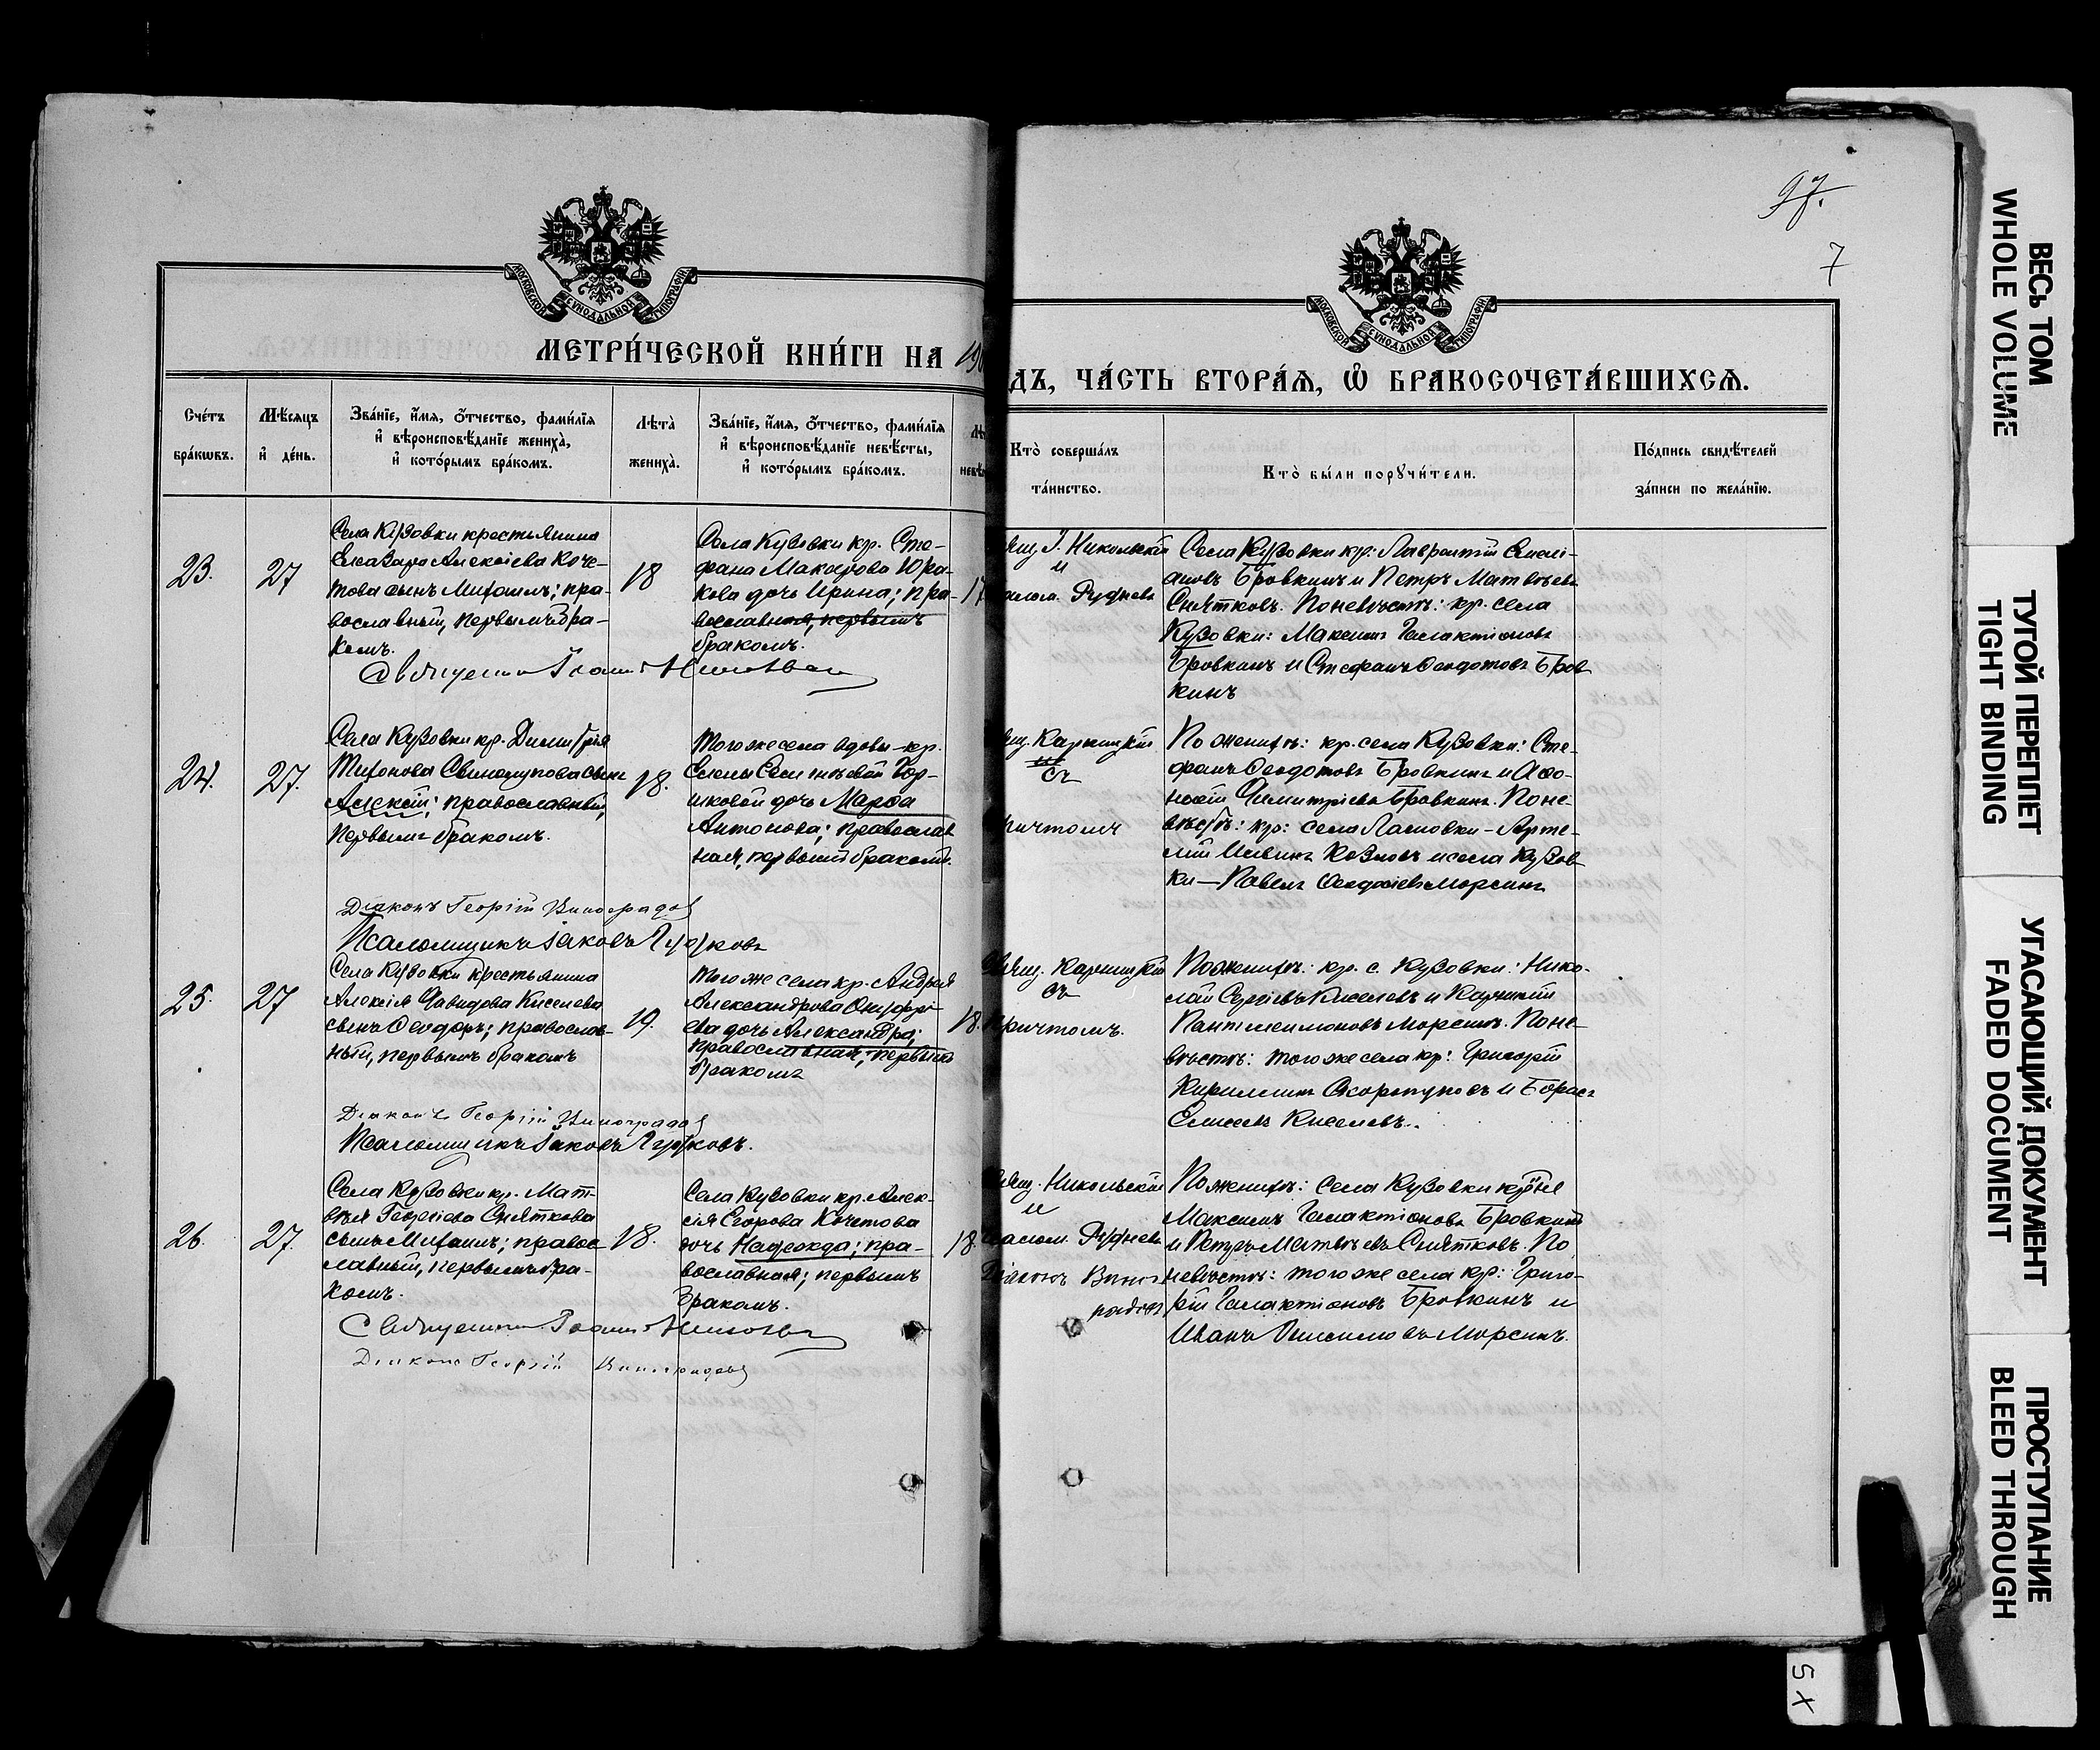 97.
7
МОСКОВСКОЙ СѴНОДАЛЬНОЙ ТИПОГРАФІИ
МЕТРИ́ЧЕСКОЙ КНИ́ГИ НА 190
МОСКОВСКОЙ СѴНОДАЛЬНОЙ ТИПОГРАФІИ
ДЪ, ЧА́СТЬ ВТОРА́Ѧ, Ѡ БРАКОСОЧЕТА́ВШИХСѦ.
Сче́тъ бра́кѡвъ.
Мѣ́сѧцъ и҆ де́нь.
Зва́нїе, и҆́мѧ, ѻ҆́тчество, фами́лїѧ
и҆ вѣроисповѣ́данїе жениха̀,
и҆ кото́рымъ бра́комъ.
Лѣта̀ жениха̀.
Зва́нїе, и҆́мѧ, ѻ҆́тчество, фами́лїѧ
и҆ вѣроисповѣ́данїе невѣ́сты,
и҆ кото́рымъ бра́комъ.
Кто̀ соверша́лъ та́инство.
Кто̀ бы́ли порꙋчи́тели.
По́дпись свидѣ́телей за́писи по жела́нїю.
23.
27
Села Кузовки крестьянина
Елеазара Алексіева Коче-
това сынъ Михаилъ; пра-
вославный, первымъ бра-
комъ.
18
Села Кузовки кр. Сте-
фана Макарова Юра-
кова дочь Ирина; пра-
вославная, первымъ
бракомъ.
17
Священникъ Іоаннъ Никольскій
І. Никольскій
и
Рудневъ
Села Кузовки кр: Лаврентій
Бровкинъ и Петръ Матвѣевъ
Снятковъ. По невѣстѣ: кр. села
Кузовки: Максимъ Галактіоновъ
Бровкинъ и Стефанъ Ѳеодотовъ Бров
кинъ
24.
27.
Села Кузовки кр. Димитрія
Тихонова сынъ
Алексій; православный,
первымъ бракомъ.
18.
Того же села вдовы-кр.
Елены
дочь Марѳа
Антонова; православ
ная, первымъ бракомъ.
Карницкій
съ
причтомъ
По женихѣ: кр. села Кузовки: Сте-
фанъ Ѳеодотовъ Бровкинъ и Аѳа-
насій Димитріевъ Бровкинъ. По не-
вѣстѣ: кр: села Ласовки - Арте-
мій Козловъ и села Кузов
ки — Павелъ Морсинъ
Діаконъ Георгій Виноградовъ
Псаломщикъ Іаковъ
25.
27
Села Кузовки крестьянина
Алексія Давидова Киселева
сынъ Ѳеодоръ; православ-
ный, первымъ бракомъ
19.
Того же села кр. Андрея
Александрова Онуфрі-
ева дочь Александра;
православная, первымъ
бракомъ
18.
Свящ. Карницкій
съ
причтомъ.
По женихѣ: кр. с. Кузовки: Нико-
лай Сергіевъ Киселевъ и
Пантелеимоновъ Морсинъ. По не-
вѣстѣ: того же села кр: Григорій
Кирилинъ и Борисъ
Елисеевъ Киселевъ.
Діаконъ Георгій Виноградовъ
Псаломщикъ Іаковъ
26.
27.
Села Кузовки кр. Мат-
вѣя Георгіева Сняткова
сынъ Михаилъ; правос-
лавный, первымъ бра-
комъ.
18.
Села Кузовки кр. Алек-
сія Егорова Кочетова
дочь Надежда; пра-
вославная; первымъ
бракомъ.
18.
Свящ. Никольскій
и
Псалом. Рудневъ
Діаконъ Виног
радов
По женихѣ: села Кузовки кр-не
Максимъ Галактіоновъ Бровкинъ
и Петръ Матвѣевъ Снятковъ. По
невѣстѣ: того же села кр: Григо-
рій Галактіоновъ Бровкинъ и
Иванъ Морсинъ.
Священникъ Іоаннъ Никольскій
Діаконъ Георгій Виноградовъ
ВЕСЬ ТОМ
WHOLE VOLUME
ТУГОЙ ПЕРЕПЛЕТ
TIGHT BINDING
УГАСАЮЩИЙ ДОКУМЕНТ
FADED DOCUMENT
ПРОСТУПАНИЕ
BLEED THROUGH
5X